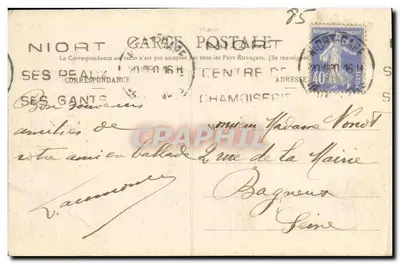 85
NIORT
CARTE POSTALE
NIORT
La Correspondance au recto n'est pas acceptée par tous les Pays Étrangers. (Se renseigner
SES PEAUX
CORRESPONDANCE
CENTRE DE
ADRESSE
SES GANTS
CHAMOISERIE
NIORT-GARE
16H
40c
Bon souvenir
amitiés de
votre ami en ballade
Monsieur Madame
2 rue de la Mairie
Bagneux
Seine
CPAPHIL.COM